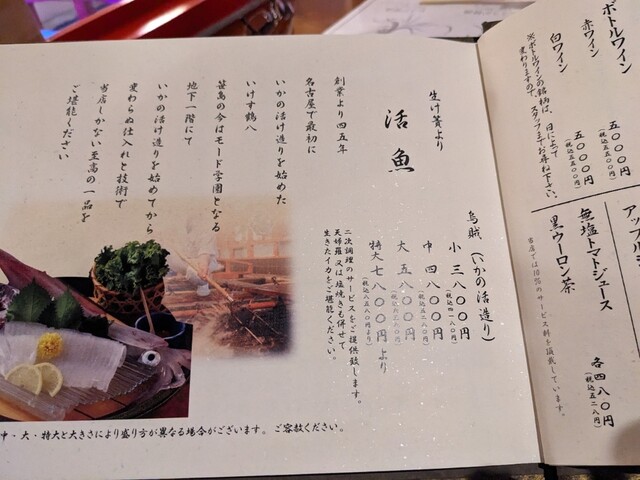 ボトルワイン
赤ワイン
五〇〇〇円
(税込五五〇〇円)
白ワイン
五〇〇〇円
(税込五五〇〇円)
※ボトルワインの銘柄は、日によって
変わりますので、スタッフまでお尋ね下さい。
無塩トマトジュース
黒ウーロン茶
各四八〇円
(税込五二八円)
当店では10%のサービス料を頂戴しています。
生け簀より
活魚
烏賊 (いかの活造り)
小 三八〇〇円
(税込四一八〇円)
中 四八〇〇円
(税込五二八〇円)
大 五八〇〇円
(税込六三八〇円)
特大 七八〇〇円より
(税込八五八〇円より)
二次調理のサービスをご提供致します。
天婦羅又は塩焼きも併せて
生きたイカをご堪能ください。
創業より四五年
名古屋で最初に
いかの活け造りを始めた
いけす鶴八
笹島の今はモード学園となる
地下一階にて
いかの活け造りを始めてから
変わらぬ仕入れと技術で
当店しかない至高の一品を
ご堪能ください
中・大・特大と大きさにより盛り方が異なる場合がございます。ご容赦ください。